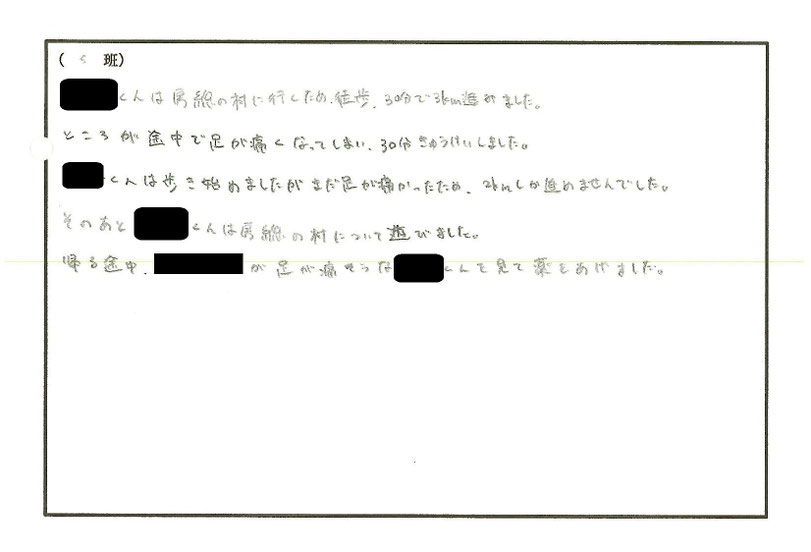 ( 5 班)
くんは房総の村に行くため、徒歩、30分で3km進みました。
ところが途中で足が痛くなってしまい、30分きゅうけいしました。
くんは歩き始めましたがまだ足が痛かったため、2kmしか進めませんでした。
そのあと くんは房総の村について遊びました。
帰る途中、 が足が痛そうな くんを見て薬をあげました。